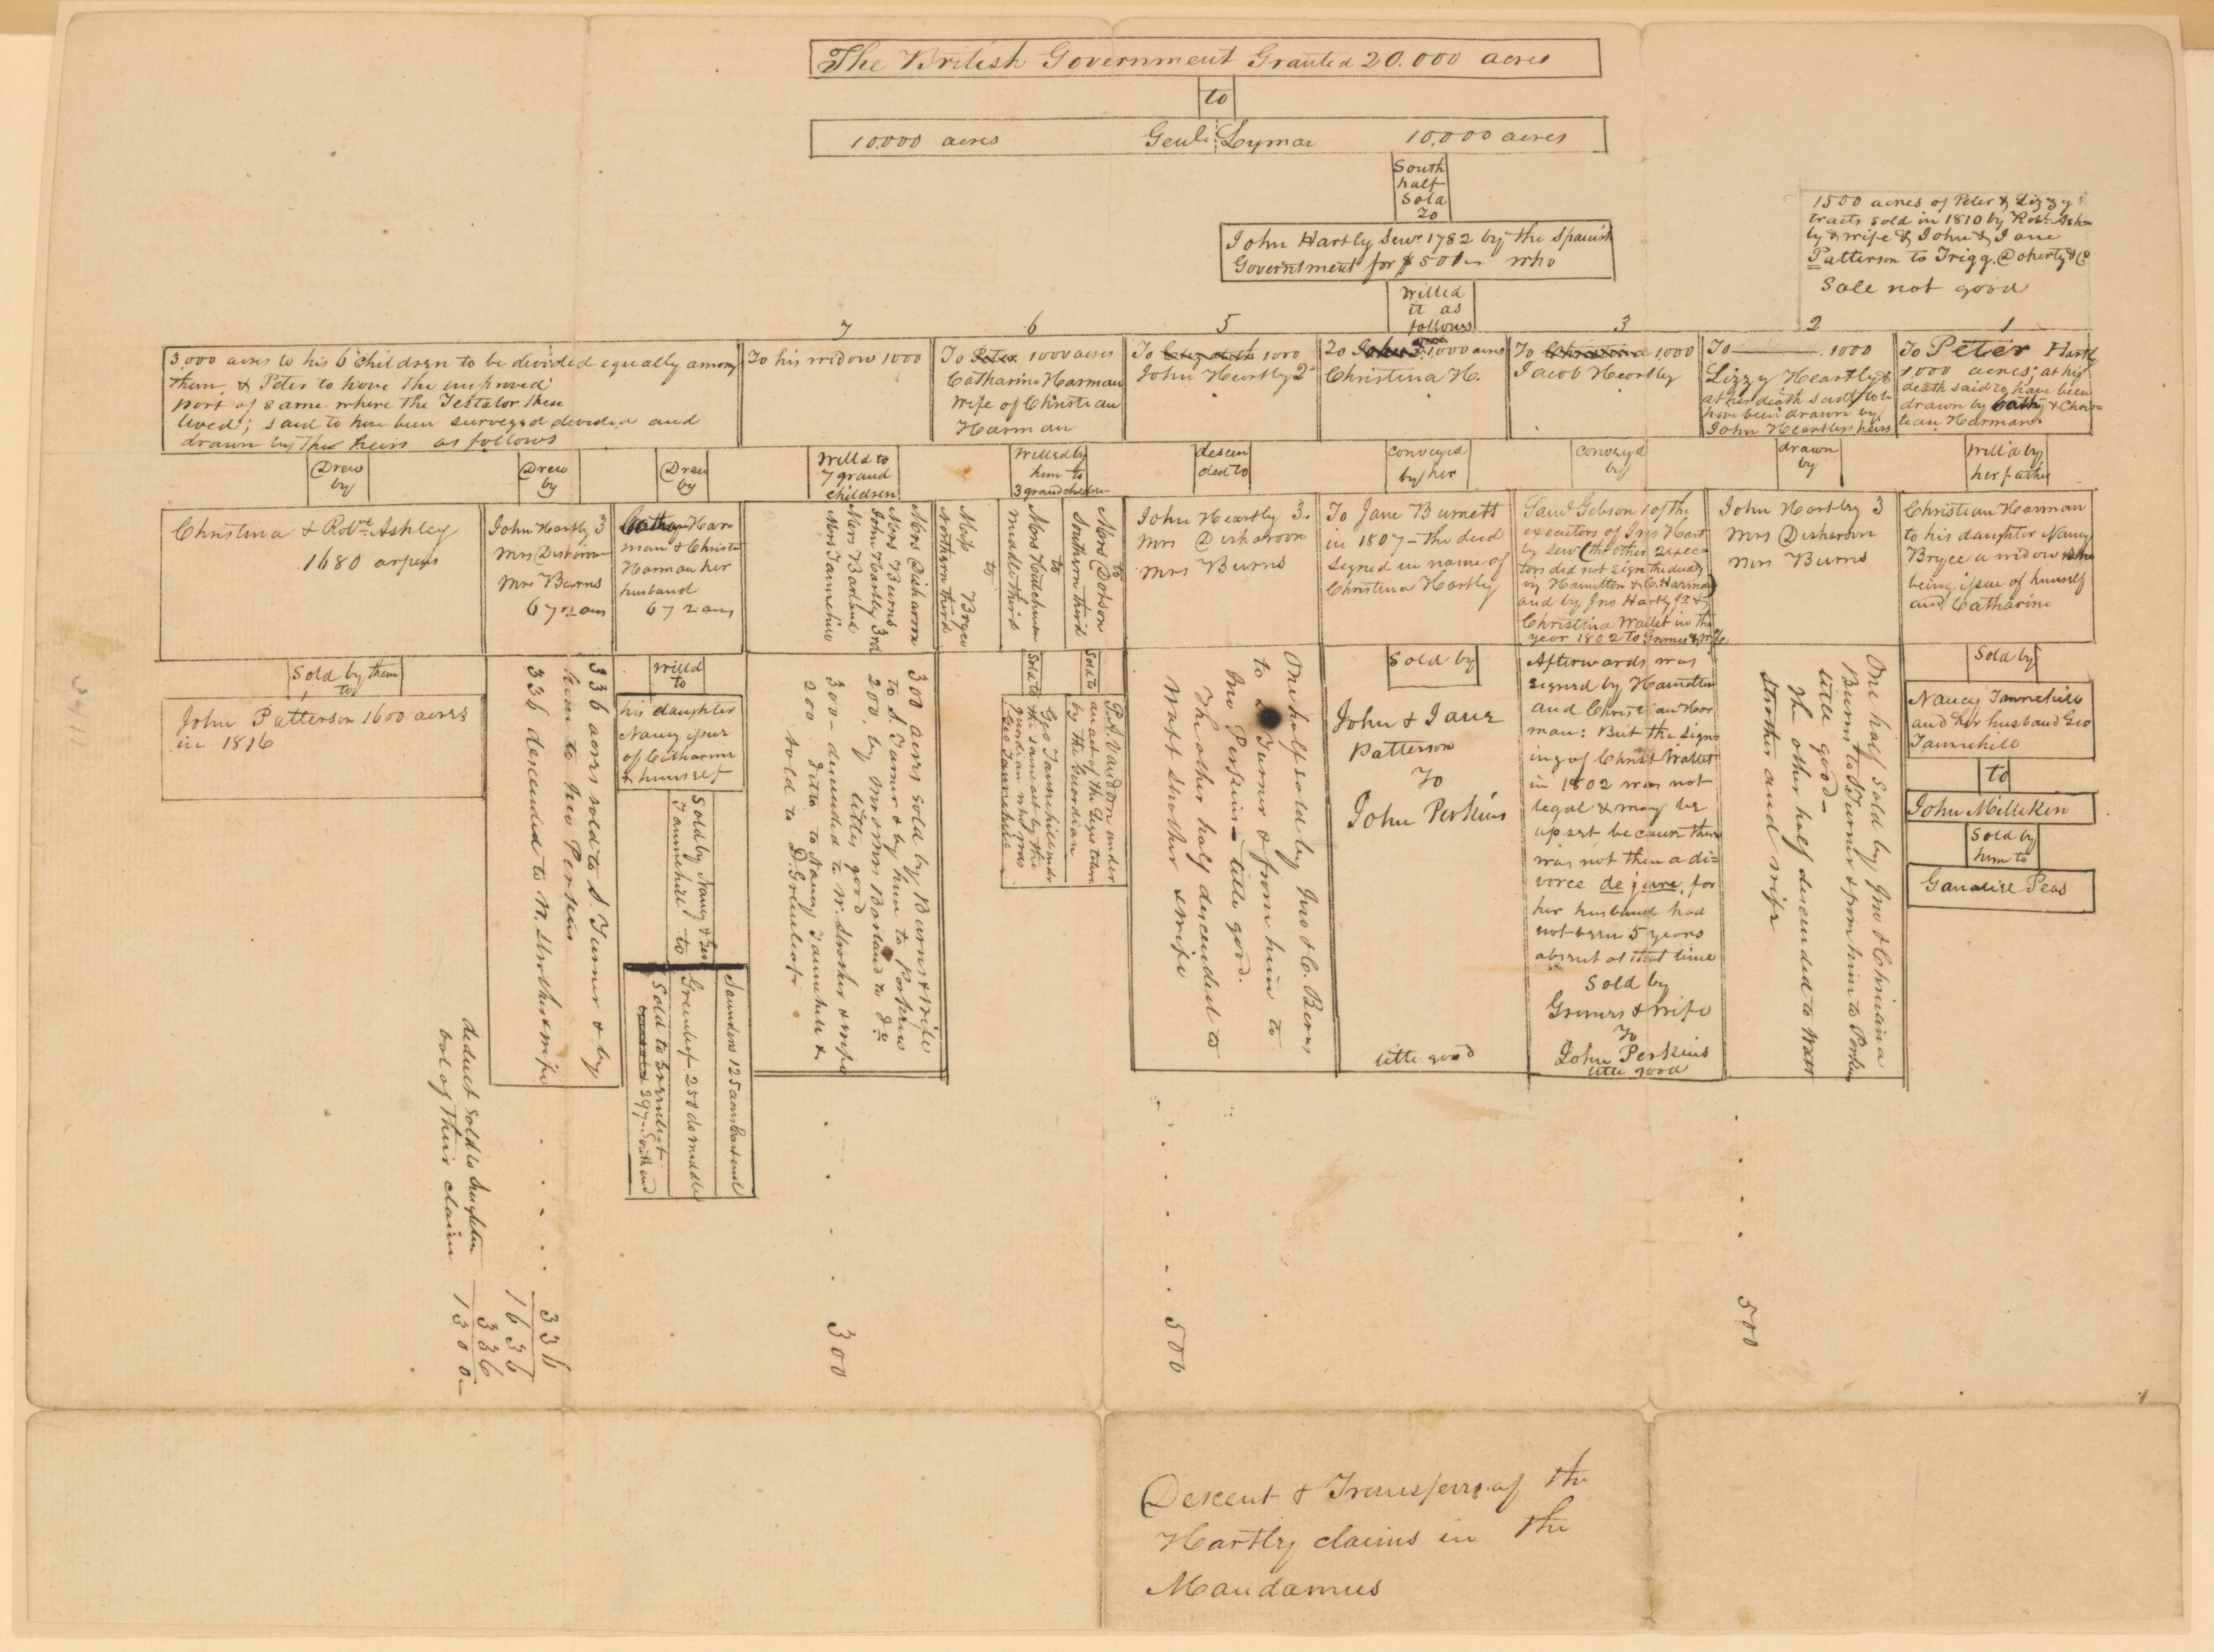 The British Government Granted 20.000 acres
to
10.000 acres Genl. Lyman 10,000 acres
South
half
Sold
To
John Hartly Senr. 1782 by the Spanish
Government for $500 who
Willed
it as
follows
1500 acres of Peter & Lizzy's
tracts sold in 1810 by Robt. Ash=
ly & wife & John & Jane
Patterson to Trigg. Doherty & Co
Sale not good
7 6 5 3 2 1
3,000 acres to his 6 Children to be divided equally among
them, & Peter to have the improved
part of same where the Testator then
lived; said to have been surveyed devided and
drawn by the heirs as follows
To his widow 1000
To Peter 1000 acres
Catharine Harman
wife of Christian
Harman
To 1000
John Heartly 2d
To John 1,000 acres
Christina H.
To Christina 1,000
Jacob Heartly
To 1000
Lizzy Heartly &
at her death said to
have been drawn by
John Heartlys heirs
To Peter Hartly
1,000 acres; at his
death said to have been
drawn by Cathy & Chris=
tian Harman.
Drew
by
Drew
by
Drew
by
Will'd to
7 grand
children
Willed by
him to
3 grandchildren
descen
ded to
Conveyed
by her
Conveyed
by
drawn
by
Will'd by
her father
Christina & Robt. Ashley
1680 arpens
John Hartly 3
Mrs Disharoon
Mrs Burns
672 ars
Cathy Har=
man & Christn
Harman her
husband
672 ars
Mrs Disharoon
Mrs Burns
John Hartly 3rd
Mrs Borland
Mrs Tannehill
to
Miss Bryce
Northern third
to
Mrs Hutchinson
Middle third
to
Mrs Dotson
Southern third
John Heartly 3.
Mrs Disharoon
Mrs Burns
To Jane Burnett
in 1807 - the deed
signed in name of
Christina Hartly
Saml Gibson 1 of the
executors of Jno Hart
ly Senr (the other 2 execu
tors did not sign the deed)
by Hamilton & C. Harman
and by Jno Hartly Jr &
Christina Wallet in the
year 1802 to Grimes & wife
John Hartly 3
Mrs Disharoon
Mrs Burns
Christian Harman
to his daughter Nancy
Bryce a widow she
being issue of himself
and Catharine
Sold by them
to
John Patterson 1600 acres
in 1816
336 acres sold to S. Turner & by
him to Jno Perkins
336 descended to W. Strother & wife
Willd
to
his daughter
Nancy issue
of Catharine
& himself
Sold by Nancy & Geo
Tannehill to
Saunders 125 acres East end
Greenleaf 250 do middle
Sold to
297 - South end
300 acres sold by Burns & wife
to S. Turner & by him to Perkins
200. by Mr & Mrs Borland to do
titles good
300 - descended to W. Strother & wife
200 ditto to Nancy Tannehill &
sold to D. Greenleaf
Sold to
Sold to
P. A. Vandorn under
an act of the Legislature
by the Guardian
Geo Tannehill under
the same act by the
guardian who was
Geo Tannehill
One half sold by Jno & C. Burns
to S Turner & from him to
Jno Perkins - title good.
The other half descended to
Watt Strother & wife
Sold by
John & Jane
Patterson
To
John Perkins
title good
Afterwards was
signed by Hamilton
and Christian Har
man: But the sign
ing of Christ Wallet
in 1802 was not
legal & may be
upset because there
was not then a di=
vorce de jure, for
her husband had
not been 5 years
absent at that time
Sold by
Grimes & wife
To
John Perkins
title good
One half sold by Jno & Christina
Burns to S Turner & from him to Perkins
title good -
The other half descended to Watt
Strother and wife
Sold by
Nancy Tannehill
and her husband Geo
Tannehill
to
John Milliken
Sold by
him to
Peas
deduct sold to
bal of their claim
336
1636
336
1300.
300
500
500
Descent & Transfers of the
Hartly claims in the
Mandamus